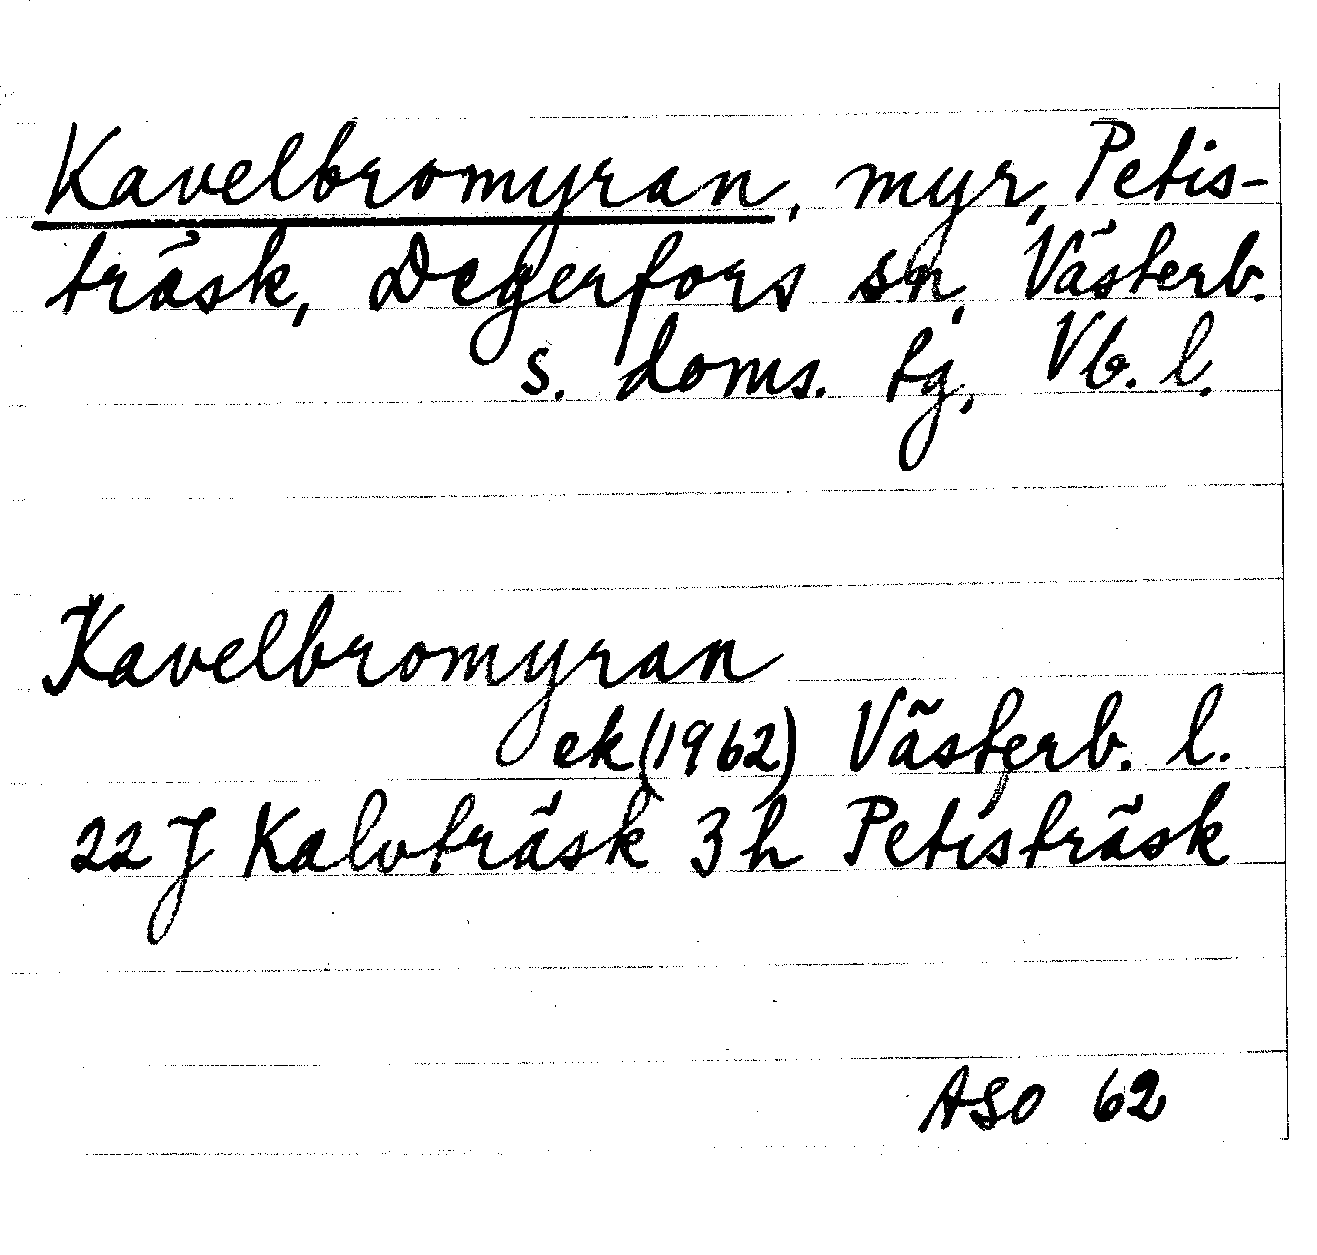 Kavelbromyran, myr, Petis-
träsk, Degerfors sn, Västerb.
s. doms. tg, Vb. l.
Kavelbromyran
ek (1962) Västerb. l.
22 J Kalvträsk 3 h Petisträsk
ASO 62